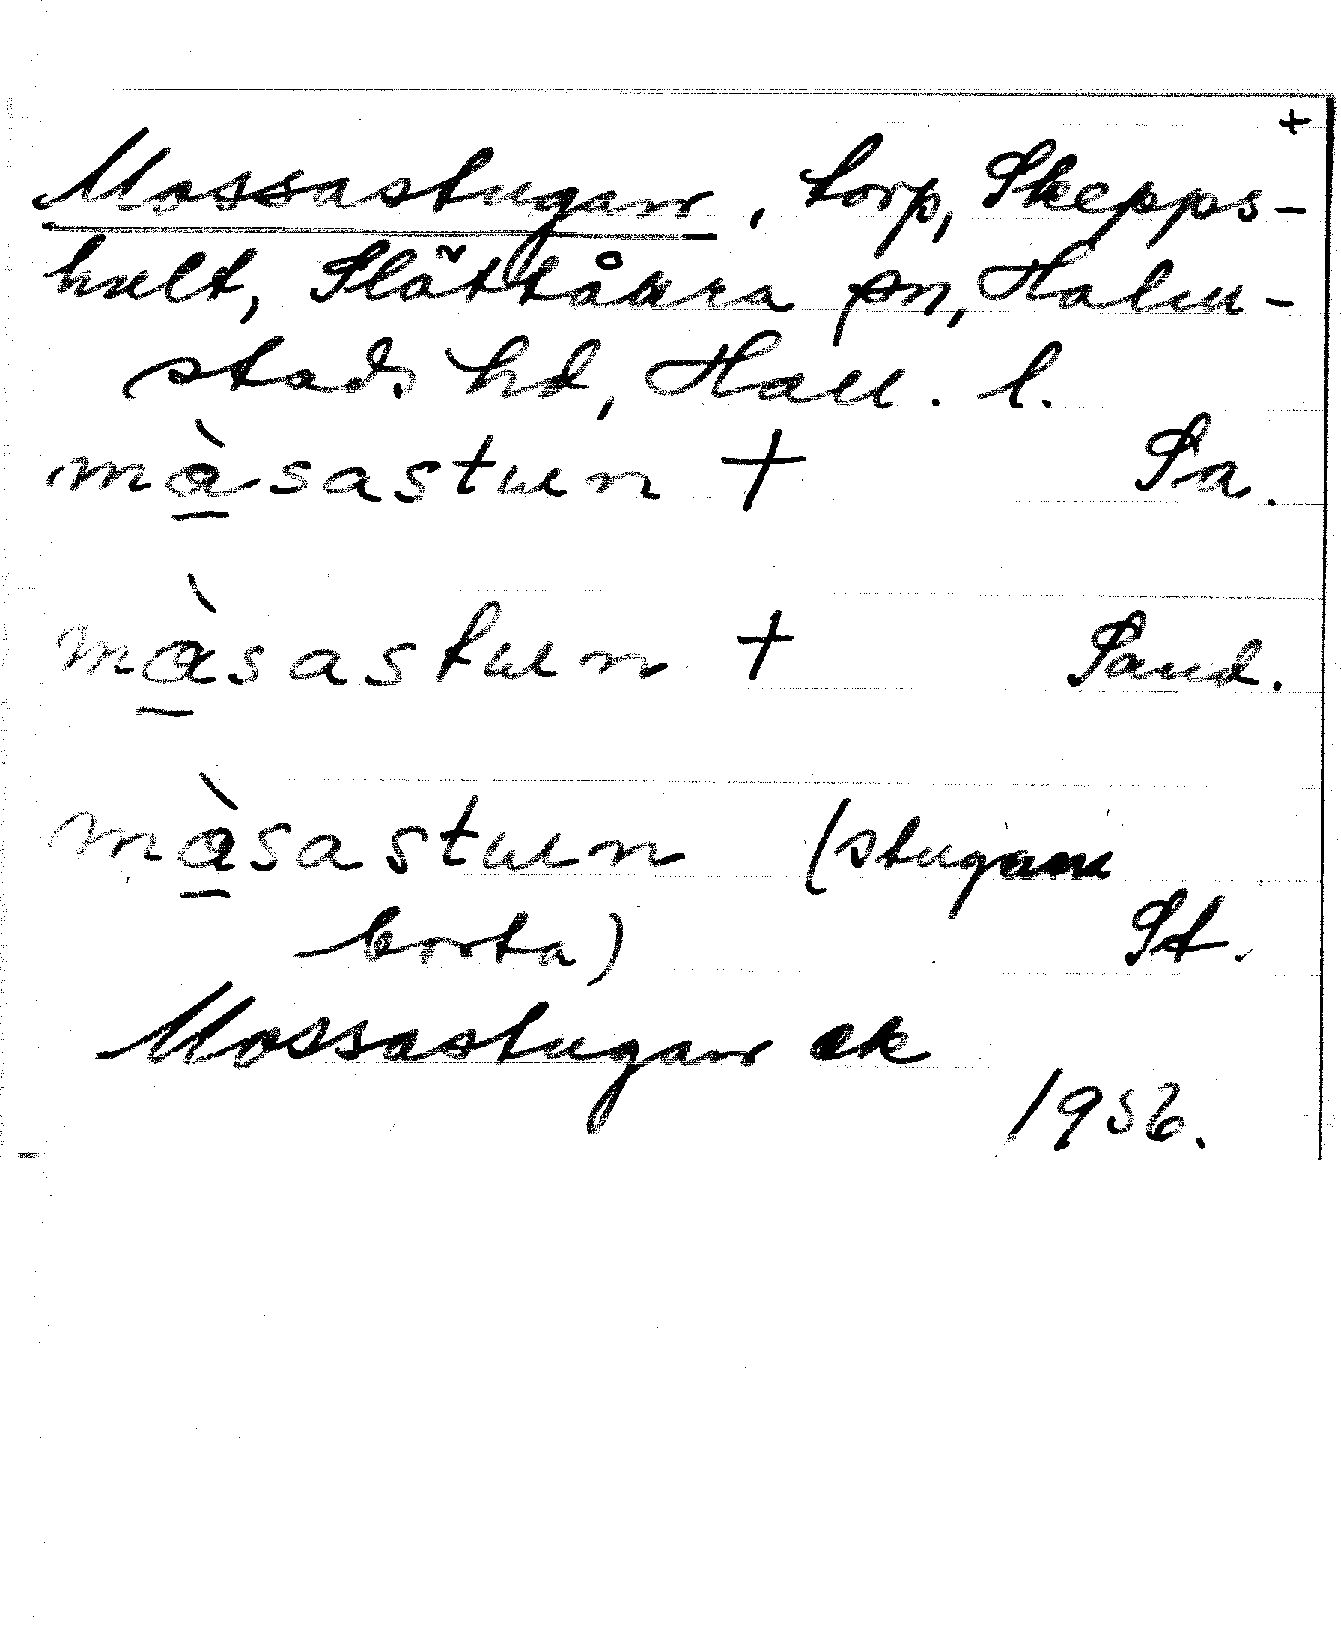 +
Mossastugan, torp, Skepps-
hult, Slättåkra sn, Halm-
stads hd, Hall. l.
màsastuen + Sa.
màsastuen + Sand.
màsastuen (stugan
borta) St.
Mossastugan ek
1956.